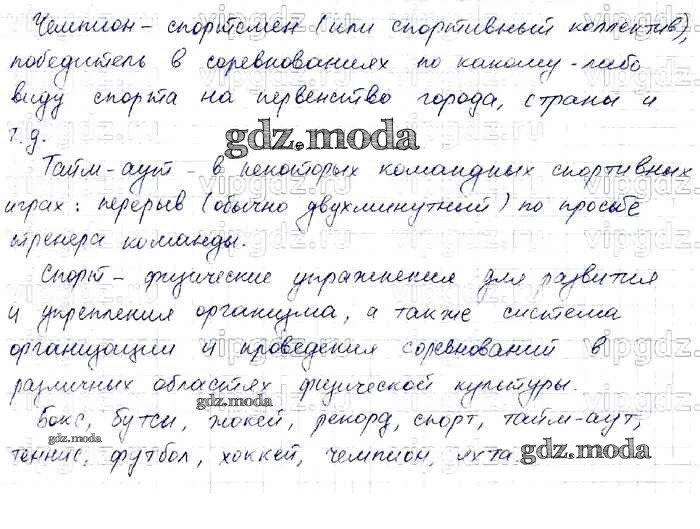 Чемпион – спортсмен (или спортивный коллектив),
победитель в соревнованиях по какому-либо
виду спорта на первенство города, страны и
т.д.
gdz.moda
Тайм-аут – в некоторых командных спортивных
играх: перерыв (обычно двухминутный) по просьбе
тренера команды.
Спорт – физические упражнения для развития
и укрепления организма, а также система
организации и проведения соревнований в
различных областях физической культуры.
gdz.moda
Бокс, бутсы, жокей, рекорд, спорт, тайм-аут,
gdz.moda
теннис, футбол, хоккей, чемпион, яхта
gdz.moda